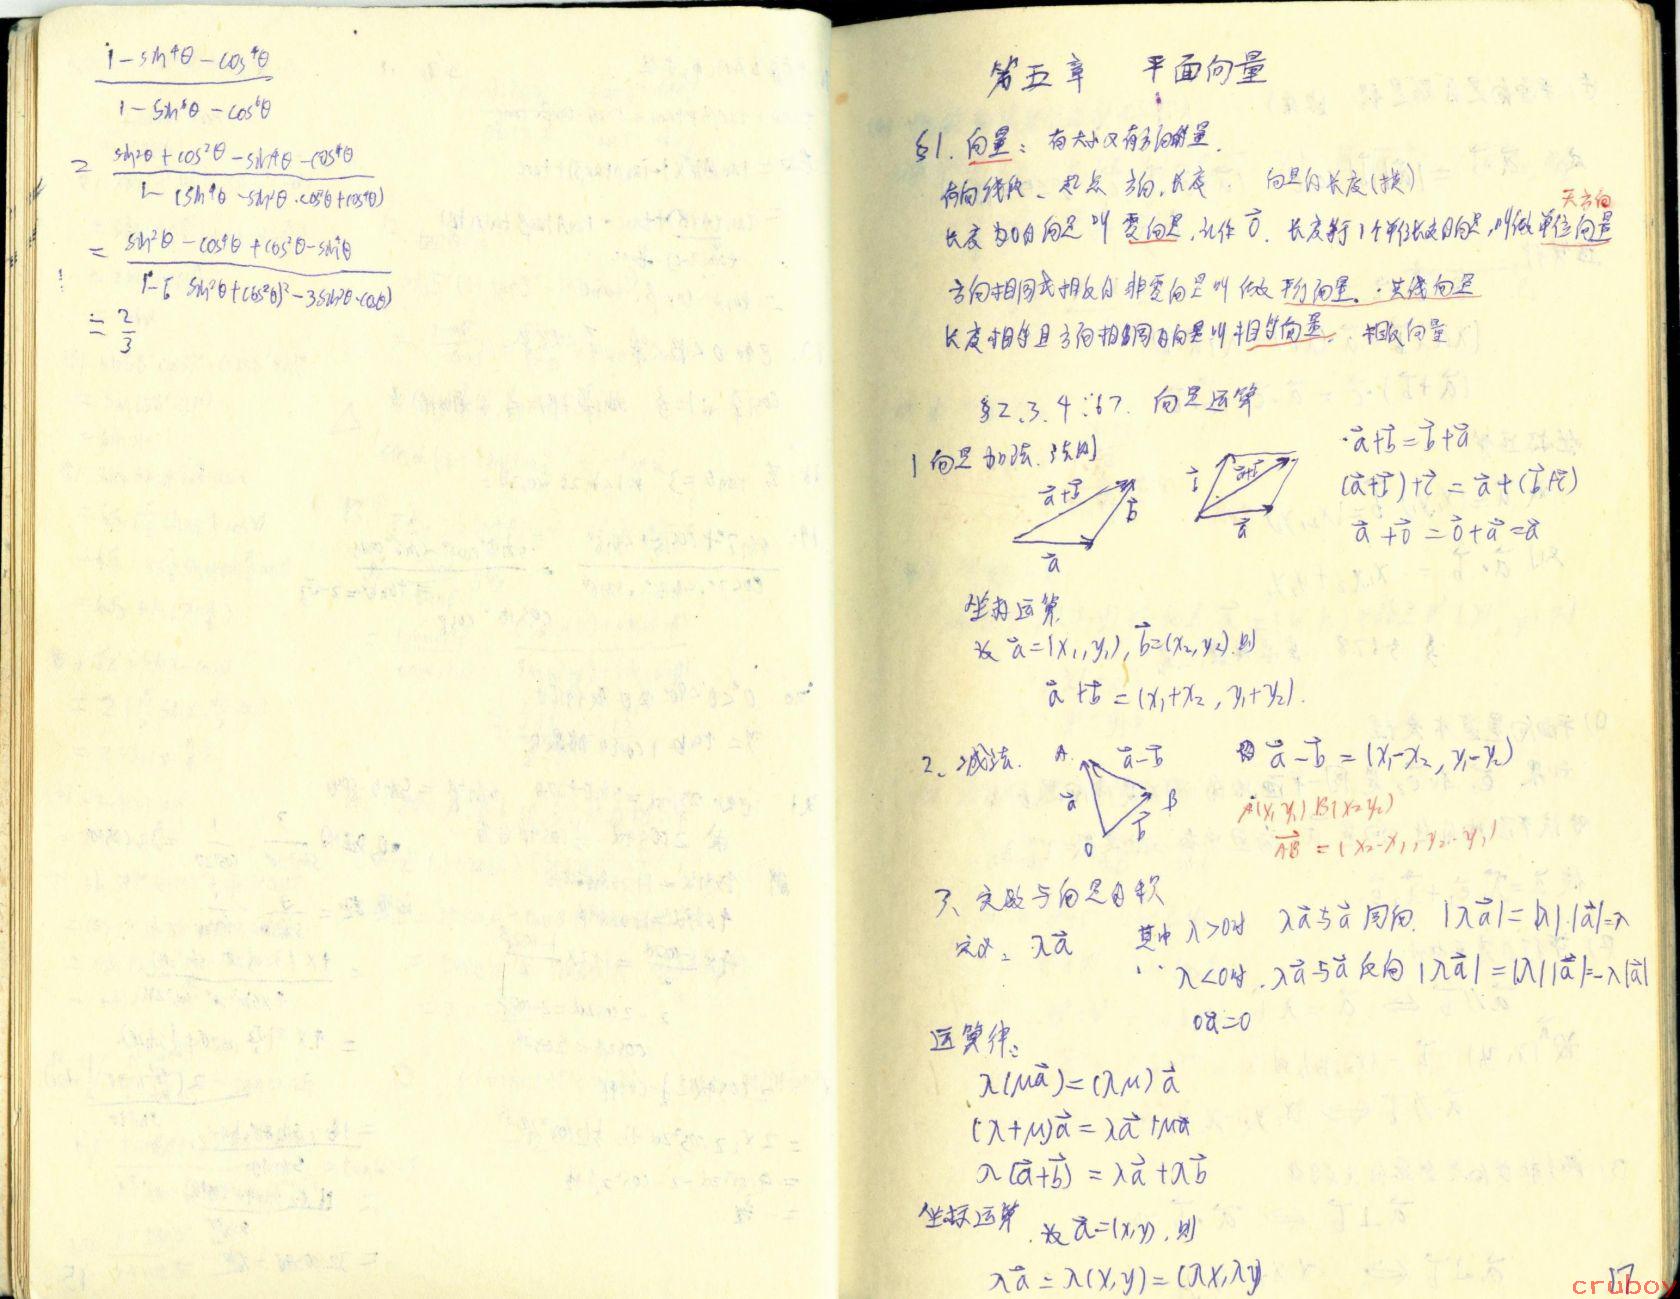 1-sin⁴θ-cos⁴θ
1-sin⁶θ-cos⁶θ
= sin²θ+cos²θ-sin⁴θ-cos⁴θ
1-(sin⁴θ-sin²θ·cos²θ+cos⁴θ)
= sin²θ-cos⁴θ+cos²θ-sin⁴θ
1-[(sin²θ+cos²θ)²-3sin²θ·cosθ)
= 2/3
第五章 平面向量
§1. 向量: 有大小又有方向的量.
有向线段、起点 方向,长度. 向量的长度(模)
无方向
长度为0的向量叫零向量,记作 0⃗. 长度等于1个单位长度的向量,叫做单位向量
方向相同或相反的非零向量叫做平行向量. 共线向量
长度相等且方向相同的向量叫相等向量. 相反向量
§2、3、4、5 6 7. 向量运算
1 向量加法.法则
a⃗+b⃗ b⃗ a⃗
b⃗ a⃗+b⃗ a⃗
a⃗+b⃗=b⃗+a⃗
(a⃗+b⃗)+c⃗=a⃗+(b⃗+c⃗)
a⃗+0⃗=0⃗+a⃗=a⃗
坐标运算
设 a⃗=(x₁,y₁),b⃗=(x₂,y₂).则
a⃗+b⃗=(x₁+x₂,y₁+y₂).
2、减法. A a⃗-b⃗ a⃗-b⃗=(x₁-x₂,y₁-y₂)
a⃗ B b⃗ O
A(x₁ y₁) B(x₂ y₂)
AB⃗=(x₂-x₁,y₂-y₁)
3、实数与向量的积
定义: λa⃗ 其中 λ>0时 λa⃗与a⃗同向. |λa⃗|=|λ|·|a⃗|=λ
λ<0时,λa⃗与a⃗反向 |λa⃗|=|λ||a⃗|=-λ|a⃗|
0a⃗=0
运算律:
λ(μa⃗)=(λμ)a⃗
(λ+μ)a⃗=λa⃗+μa⃗
λ(a⃗+b⃗)=λa⃗+λb⃗
坐标运算.设a⃗=(x,y),则
λa⃗=λ(x,y)=(λx,λy)
17
cruboy